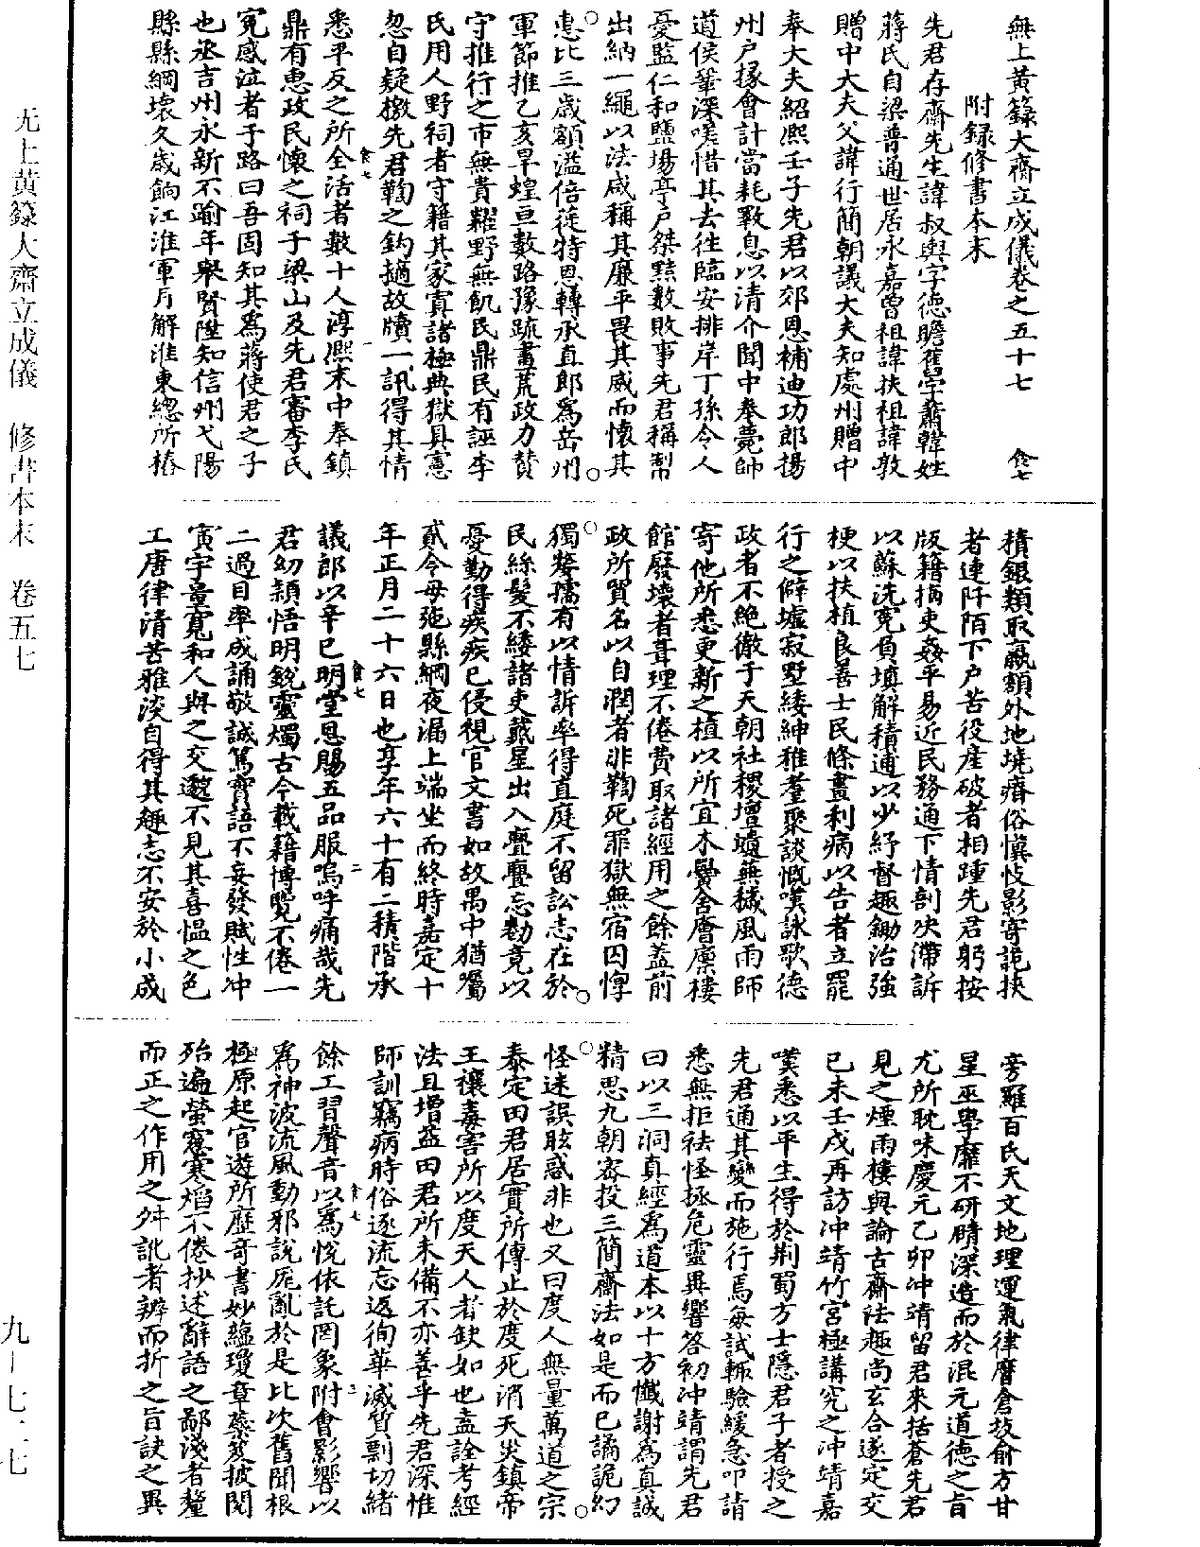 無上黃籙大齋立成儀卷之五十七 食七
附錄修書本末
先君存齋先生諱叔輿字德瞻舊字肅韓姓
蔣氏自梁普通世居永嘉曾祖諱扶祖諱敦
贈中大夫父諱行簡朝議大夫知處州贈中
奉大夫紹熙壬子先君以郊恩補迪功郎揚
州戶掾會計當耗斁息以清介聞中奉薨帥
道俟輩深嘆惜其去徃臨安排岸丁孫令人
憂監仁和鹽場亭戶桀黠數敗事先君稱製
出納一繩以法咸稱其廉平畏其威而懷其
惠比三歲額溢倍徙特恩轉承直郎為岳州
軍節推乙亥旱蝗亘數路豫疏畫荒政力贊
守推行之市無貴糶野無飢民鼎民有誣李
氏用人野祠者守籍其家寘諸極典獄具憲
忽自疑檄先君鞫之鈎擿故牘一訊得其情
悉平反之所全活者數十人淳熙末中奉鎮
鼎有惠政民懷之祠于梁山及先君審李氏
冤感泣者于路曰吾固知其為蔣使君之子
也丞吉州永新不踰年舉賢陞知信州弋陽
縣縣綱壞久歲餉江淮軍月解淮東總所樁
積銀類取贏額外地墝瘠俗愼忮影寄詭挾
者連阡陌下戶苦役產破者相踵先君躬按
版籍擿吏姦平易近民務通下情剖決滯訴
以蘇洗冤負塡解積逋以少紓督趣鋤治強
梗以扶植良善士民條畫利病以告者立罷
行之僻墟寂墅綾紳稚耋聚談慨嘆詠歌德
政者不絕徹于天朝社稷壇壝蕪穢風雨師
寄他所悉更新之植以所宜木黌舍廥廩樓
館廢壞者葺理不倦費取諸經用之餘蓋前
政所貿名以自潤者非鞫死罪獄無宿囚惸
獨嫠孺有以情訴率得直庭不留訟志在於
民絲髮不緩諸吏戴星出入亹亹忘勩竟以
憂勤得疾疾已侵視官文書如故禺中猶囑
貳令毋弛縣綱夜漏上端坐而終時嘉定十
年正月二十六日也享年六十有二積階承
議郎以辛巳明堂恩賜五品服嗚呼痛哉先
君幼穎悟明銳靈燭古今載籍博覽不倦一
二過目率成誦敬誠篤實語不妄發賦性冲
寅宇量寬和人與之交邈不見其喜慍之色
工唐律清苦雅淡自得其趣志不安於小成
旁羅百氏天文地理運氣律曆倉扳俞方甘
星巫學靡不研賾深造而於混元道德之旨
尤所耽味慶元乙卯沖靖留君來括蒼先君
見之煙雨樓與論古齋法趣尚玄合遂定交
已未壬戌再訪沖靖竹宮極講究之沖靖嘉
嘆悉以平生得於荆蜀方士隱君子者授之
先君通其變而施行焉每試輒驗緩急叩請
悉無拒祛怪拯危靈異響答初沖靖謂先君
曰以三洞真經為道本以十方懺謝為真誠
精思九朝宻投三簡齋法如是而已譎詭幻
怪迷誤眩惑非也又曰度人無量萬道之宗
泰定田君居實所傳止於度死消天災鎮帝
王禳毒害所以度天人者缺如也盍詮考經
法且增益田君所未備不亦善乎先君深惟
師訓竊病時俗逐流忘返徇華滅質剽切緒
餘工習聲音以為悅依託罔象附會影響以
為神波流風動邪說厖亂於是比次舊聞根
極原起官遊所歷奇書妙蘊瓊章蘂笈披閱
殆遍螢窻寒熖不倦抄述辭語之鄙淺者釐
而正之作用之舛訛者辨而折之旨訣之異
无上黄籙大齋立成儀 修書本末 卷五七
九—七二七